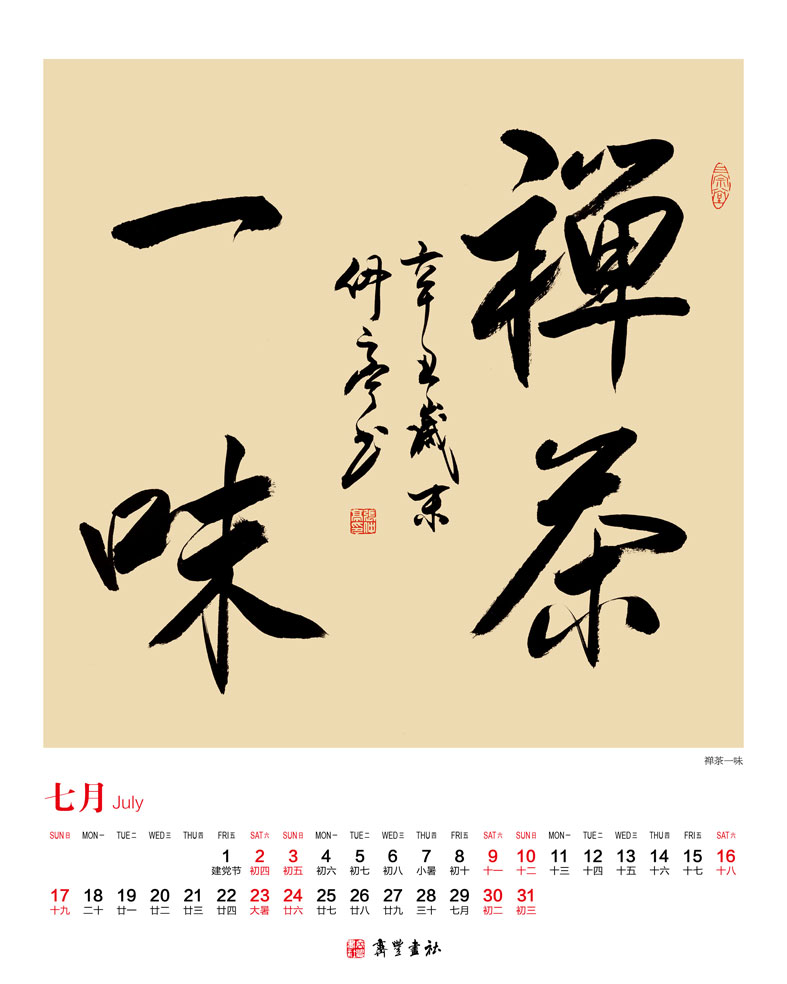 禅茶
一味
辛丑歲末
仲亭书
禅茶一味
七月 July
SUN日 MON一 TUE二 WED三 THU四 FRI五 SAT六 SUN日 MON一 TUE二 WED三 THU四 FRI五 SAT六 SUN日 MON一 TUE二 WED三 THU四 FRI五 SAT六
1 2 3 4 5 6 7 8 9 10 11 12 13 14 15 16
建党节 初四 初五 初六 初七 初八 小暑 初十 十一 十二 十三 十四 十五 十六 十七 十八
17 18 19 20 21 22 23 24 25 26 27 28 29 30 31
十九 二十 廿一 廿二 廿三 廿四 大暑 廿六 廿七 廿八 廿九 三十 七月 初二 初三